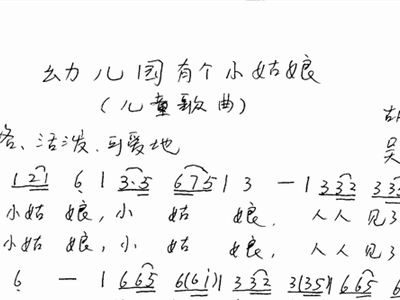 幼儿园有个小姑娘
（儿童歌曲）
活泼、可爱地
1 2 1 6 | 3·5 6 7 5 | 3 — | 3 3 2
小姑 娘，小 姑 娘， 人人 见
小姑 娘，小 姑 娘， 人人 见
6 — | 6 6 5 6(6 i) | 3 3 2 3(3 5) | 6 6 5